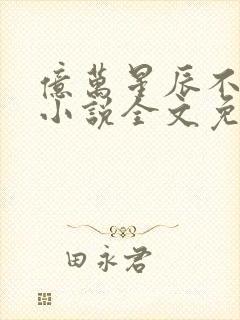 億萬星辰不
小說全文免
田永君